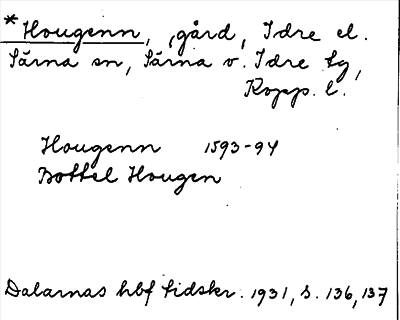 *Hougenn, gård, Idre el.
Särna sn, Särna o. Idre tg,
Kopp. l.
Hougenn 1593-94
Bottel Hougen
Dalarnas hbf tidskr. 1931, s. 136, 137